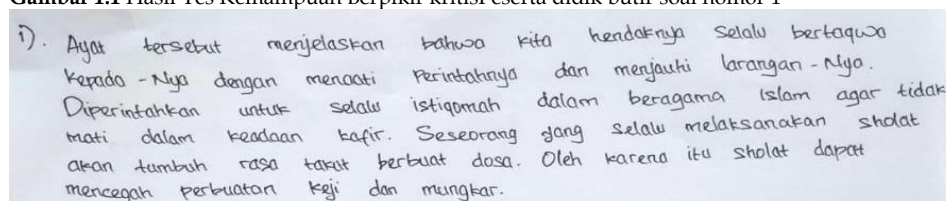 Gambar 1.1 Hasil Tes Kemampuan Berpikir Kritisi eserta didik butir soal nomor 1
1). Ayat tersebut menjelaskan bahwa kita hendaknya selalu bertaqwa
kepada-Nya dengan menaati perintahnya dan menjauhi larangan-Nya.
Diperintahkan untuk selalu istiqomah dalam beragama Islam agar tidak
mati dalam keadaan kafir. Seseorang yang selalu melaksanakan sholat
akan tumbuh rasa takut berbuat dosa. Oleh karena itu sholat dapat
mencegah perbuatan keji dan mungkar.